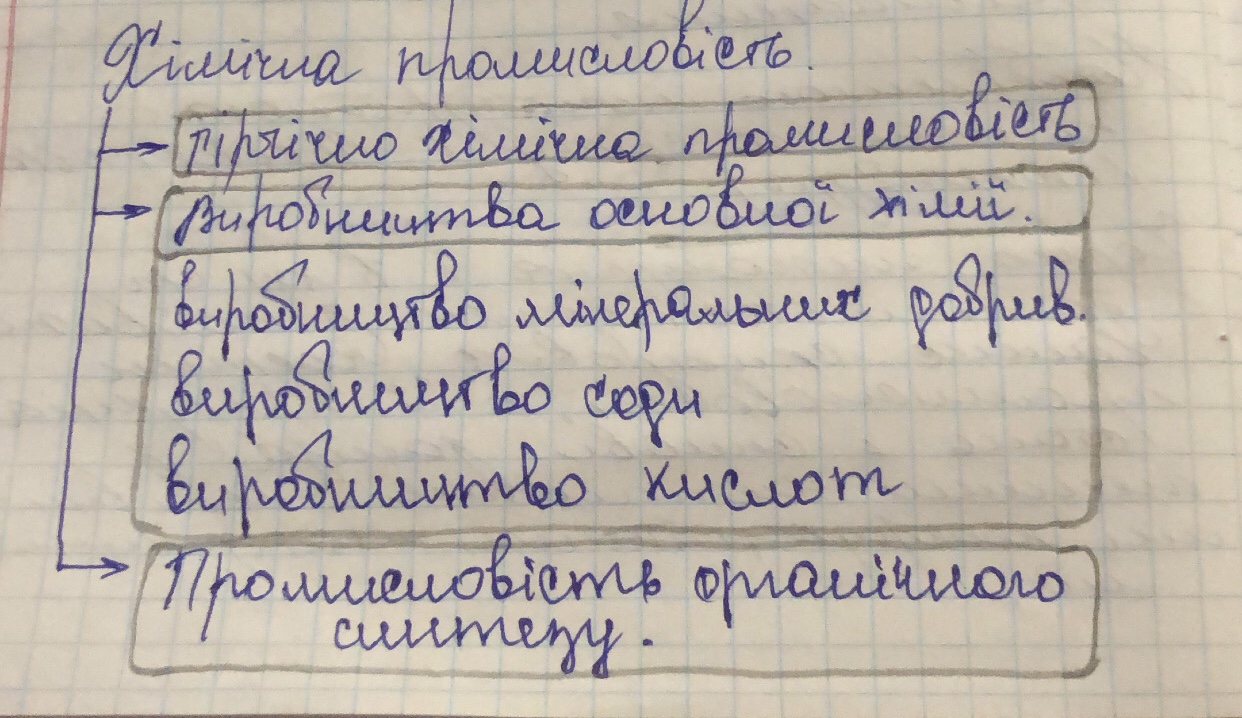 Хімічна промисловість.
гірничо хімічна промисловість
Виробництва основної хімії.
виробництво мінеральних добрив.
виробництво соди
виробництво кислот
Промисловість органічного
синтезу.